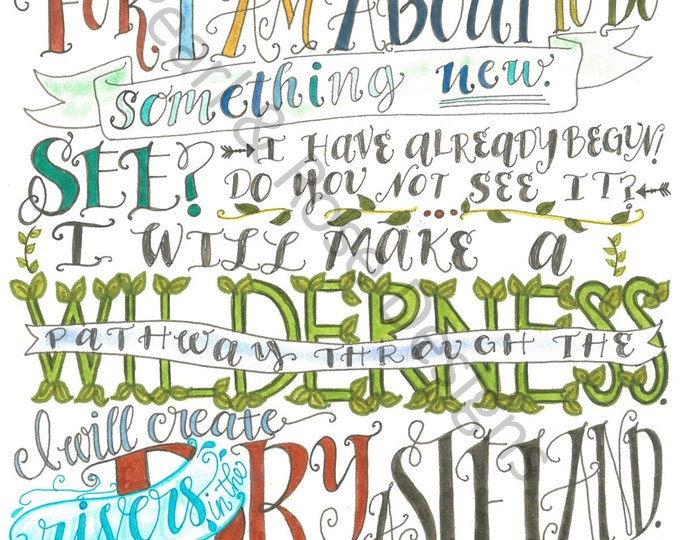 FOR I AM ABOUT TO DO
something new.
SEE? I HAVE ALREADY BEGUN!
DO YOU NOT SEE IT?
I WILL MAKE A
PATHWAY THROUGH THE
WILDERNESS.
I will create
rivers in the
DRY WASTELAND.
Pearl & Rose Designs